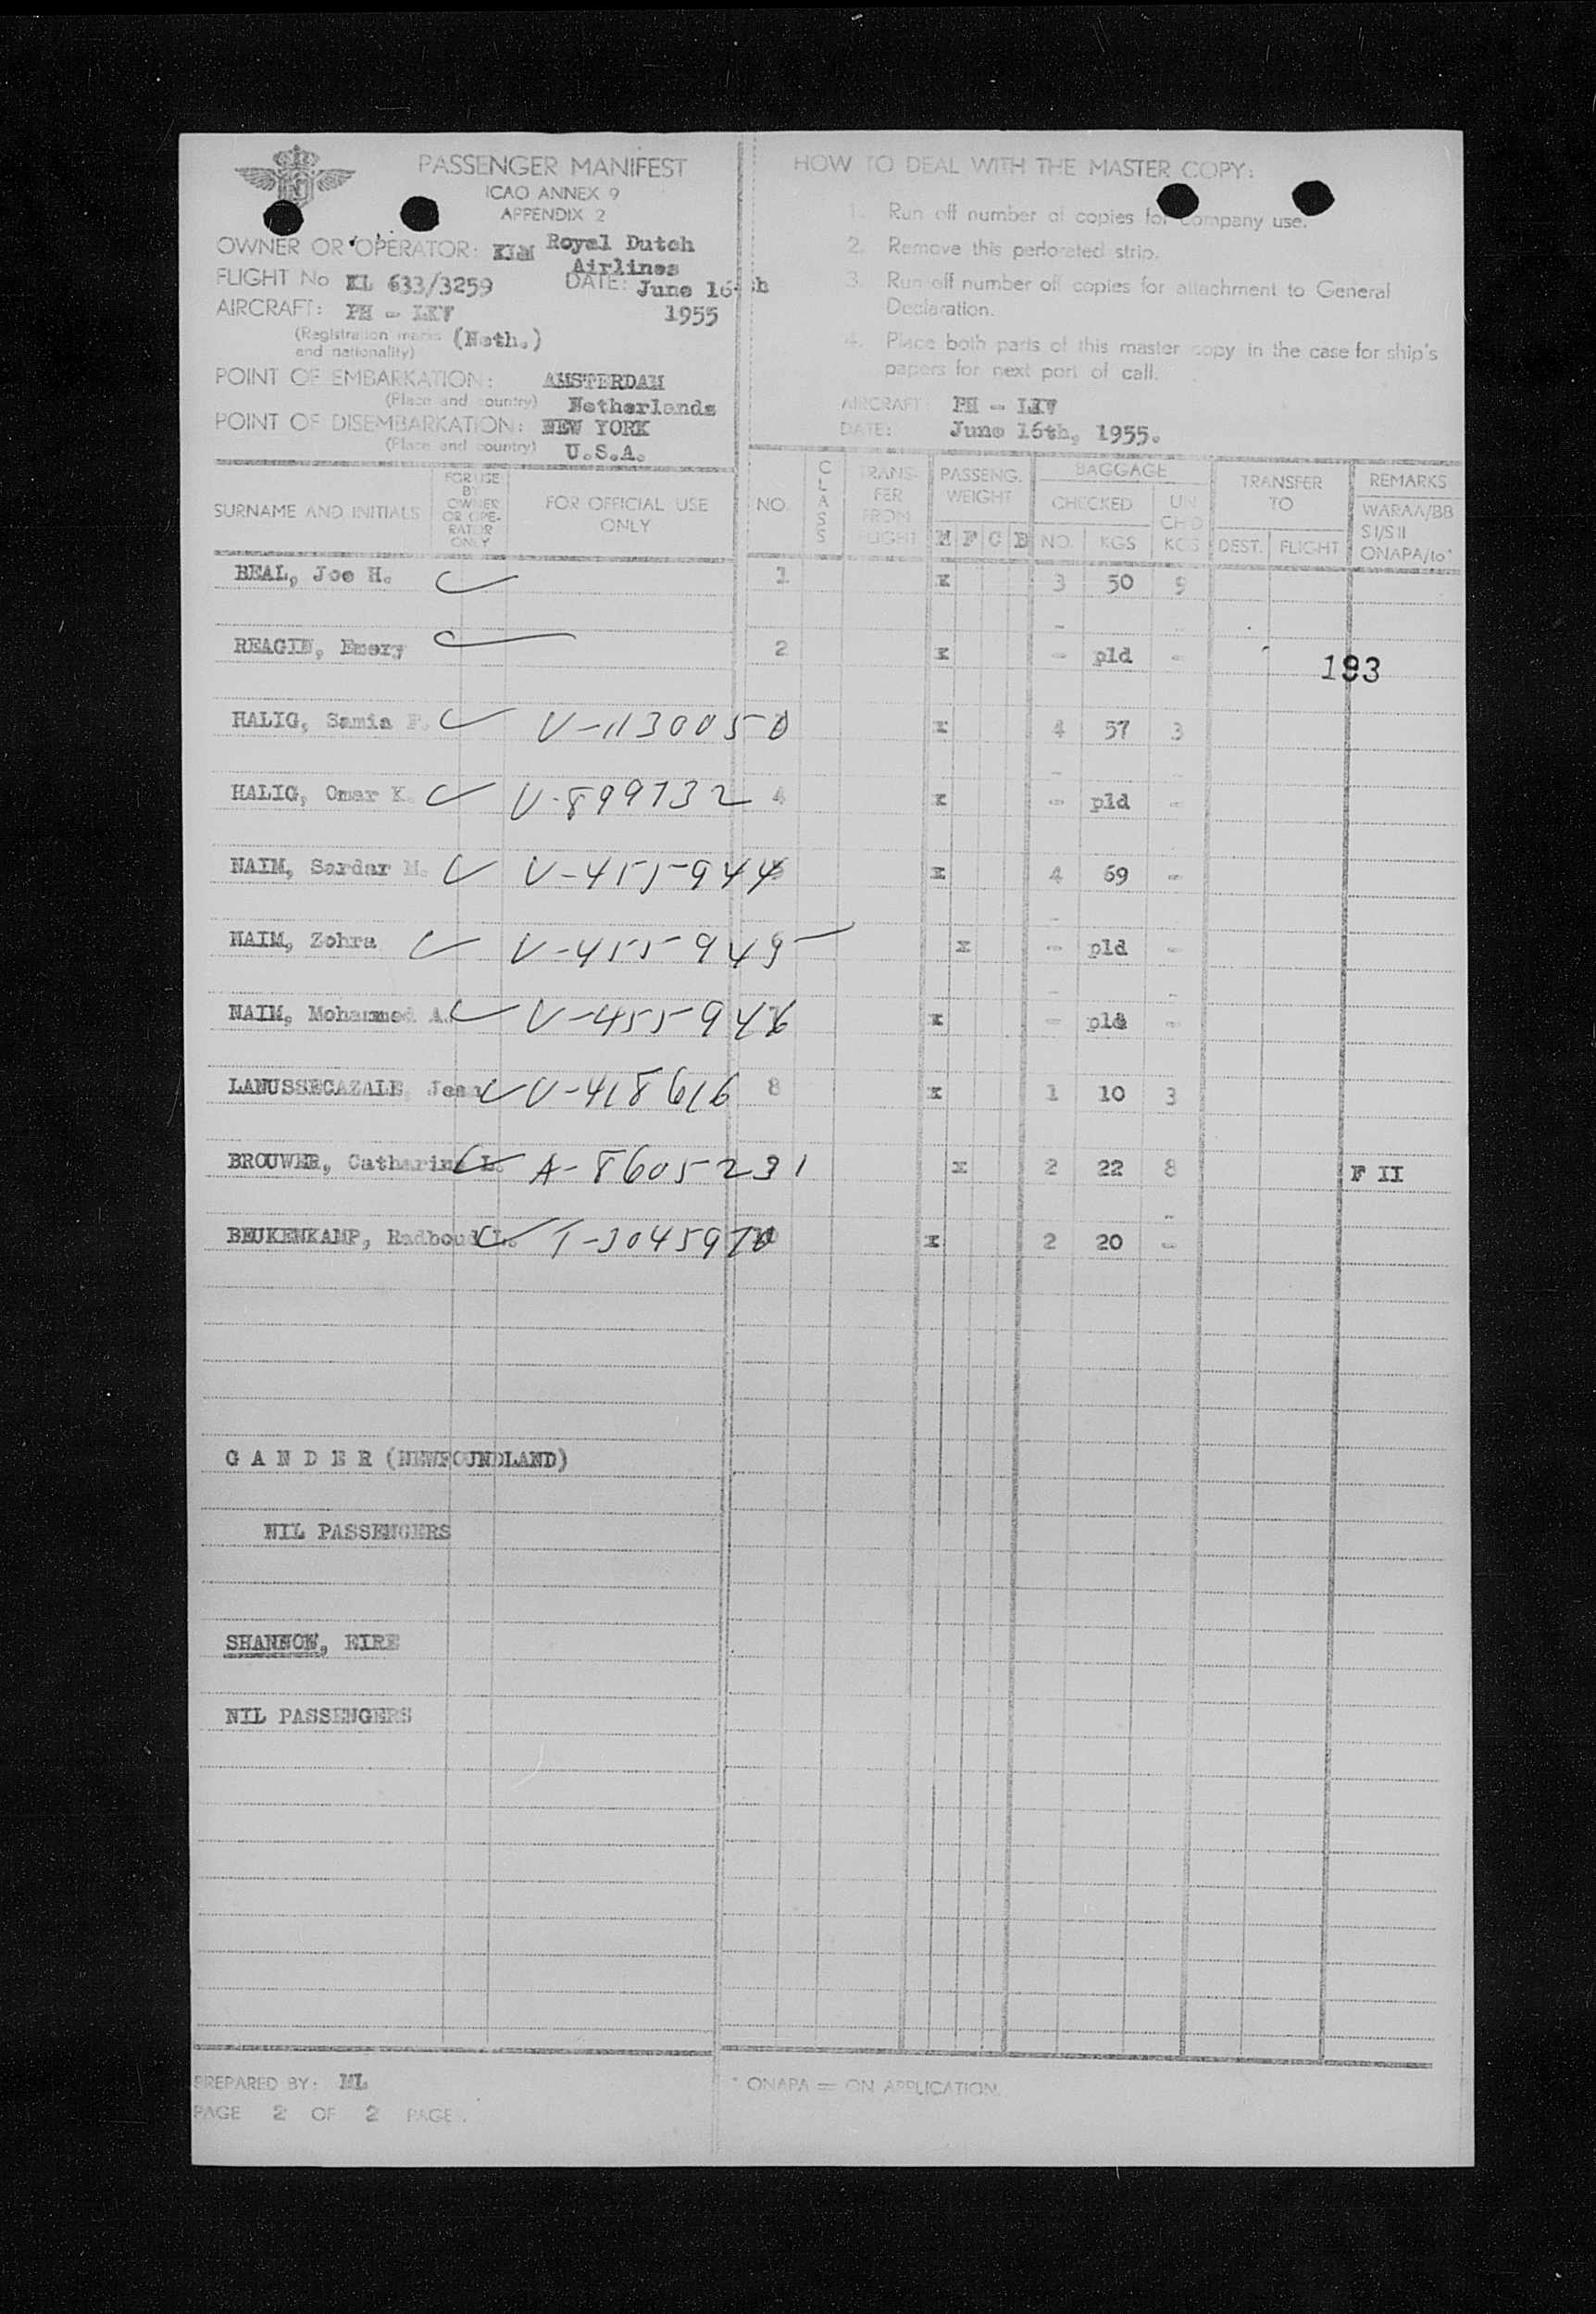 PASSENGER MANIFEST
ICAO ANNEX 9
APPENDIX 2
OWNER OR OPERATOR: KLM Royal Dutch
Airlines
FLIGHT No KL 633/3259 DATE: June 16th
AIRCRAFT: PH - LKV 1955
(Registration marks (Neth.)
and nationality)
POINT OF EMBARKATION: AMSTERDAM
(Place and country) Netherlands
POINT OF DISEMBARKATION: NEW YORK
(Place and country) U.S.A.
HOW TO DEAL WITH THE MASTER COPY:
1. Run off number of copies for company use.
2. Remove this perforated strip.
3. Run off number off copies for attachment to General
Declaration.
4. Place both parts of this master copy in the case for ship's
papers for next port of call.
AIRCRAFT PH - LKV
DATE: June 16th, 1955.
SURNAME AND INITIALS
FOR USE
BY
OWNER
OR OPE-
RATOR
ONLY
FOR OFFICIAL USE
ONLY
NO.
CLASS
TRANS-
FER
FROM
FLIGHT
PASSENG.
WEIGHT
M F C B
BAGGAGE
CHECKED
NO. KGS
UN
CH'D
KGS
TRANSFER
TO
DEST. FLIGHT
REMARKS
WARAA/BB
SI/SII
ONAPA/to*
BEAL, Joe H. 1 x 3 50 9
REAGIN, Emory 2 x - pld -
193
HALIG, Samia F. V-1130050 x 4 57 3
HALIG, Omar K. V-899732 4 x - pld -
NAIM, Sardar M. V-455944 x 4 69 -
NAIM, Zohra V-455945 x - pld -
NAIM, Mohammed A. V-455946 x - pld -
LANUSSECAZALE, Jean V-418616 8 x 1 10 3
BROUWER, Catharina L. A-8605231 x 2 22 8 F II
BEUKENKAMP, Radboud L. T-304597 10 x 2 20 -
G A N D E R (NEWFOUNDLAND)
NIL PASSENGERS
SHANNON, EIRE
NIL PASSENGERS
PREPARED BY: ML
PAGE 2 OF 2 PAGE.
* ONAPA = ON APPLICATION.